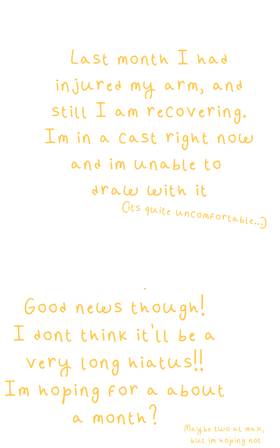 Last month I had
injured my arm, and
still I am recovering.
Im in a cast right now
and im unable to
draw with it
(its quite uncomfortable...)
Good news though!
I dont think it'll be a
very long hiatus!!
Im hoping for a about
a month?
Maybe two at max,
but im hoping not